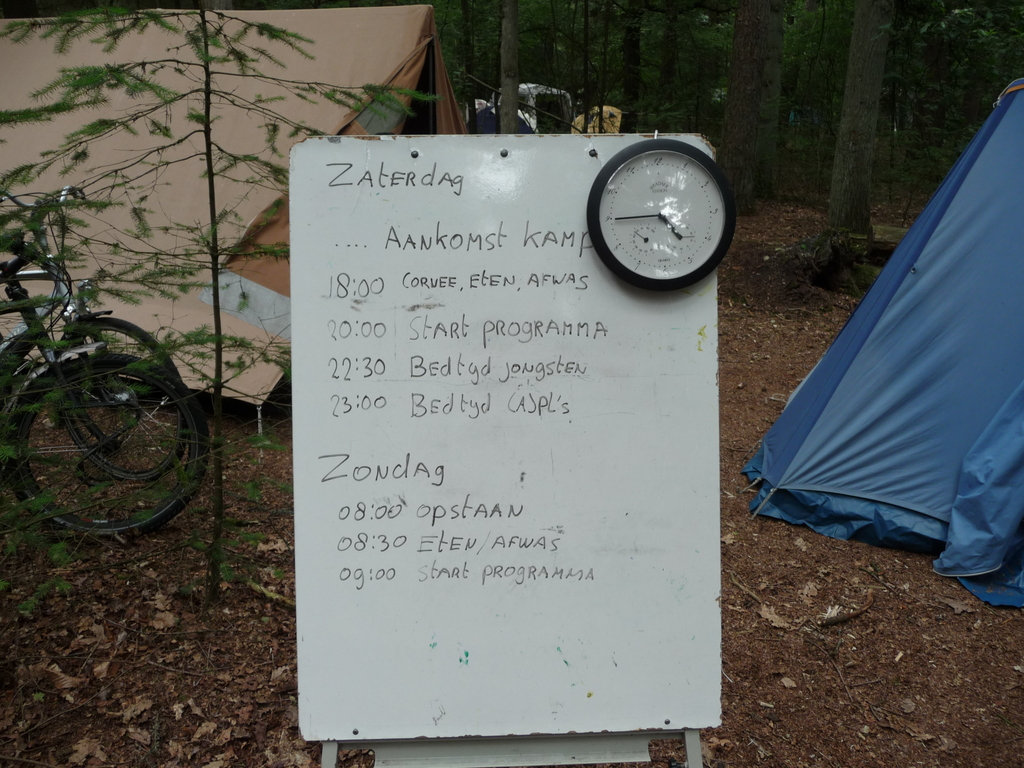 Zaterdag
.... Aankomst kamp
18:00 Corvee, Eten, Afwas
20:00 Start programma
22:30 Bedtyd jongsten
23:00 Bedtyd (A)PL's
Zondag
08:00 opstaan
08:30 Eten/Afwas
09:00 Start programma